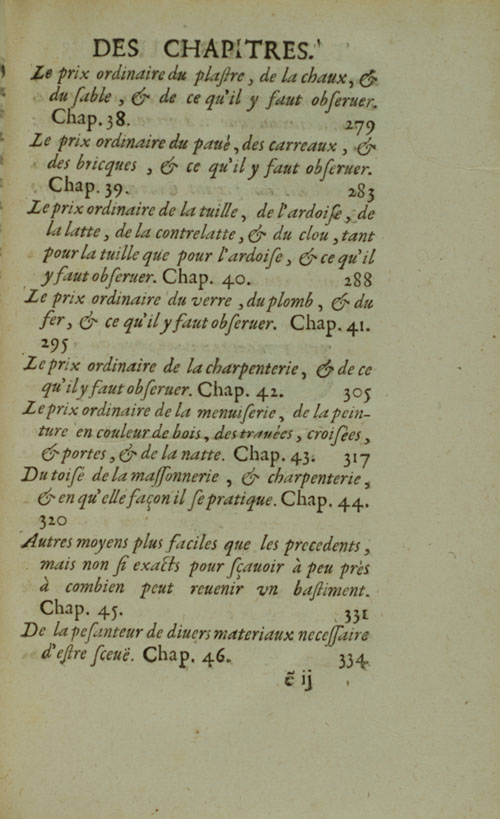 DES CHAPITRES.
Le prix ordinaire du plaſtre, de la chaux, &
du ſable, & de ce qu'il y faut obſeruer.
Chap. 38. 279
Le prix ordinaire du paué, des carreaux, &
des bricques, & ce qu'il y faut obſeruer.
Chap. 39. 283
Le prix ordinaire de la tuille, de l'ardoiſe, de
la latte, de la contrelatte, & du clou, tant
pour la tuille que pour l'ardoiſe, & ce qu'il
y faut obſeruer. Chap. 40. 288
Le prix ordinaire du verre, du plomb, & du
fer, & ce qu'il y faut obſeruer. Chap. 41.
295
Le prix ordinaire de la charpenterie, & de ce
qu'il y faut obſeruer. Chap. 42. 305
Le prix ordinaire de la menuiſerie, de la pein-
ture en couleur de bois, des trauées, croiſées,
& portes, & de la natte. Chap. 43. 317
Du toiſé de la maſſonnerie, & charpenterie,
& en qu'elle façon il ſe pratique. Chap. 44.
320
Autres moyens plus faciles que les precedents,
mais non ſi exacts pour ſçauoir à peu près
à combien peut reuenir vn baſtiment.
Chap. 45. 331
De la peſanteur de diuers materiaux neceſſaire
d'eſtre ſceuë. Chap. 46. 334
ẽ ij